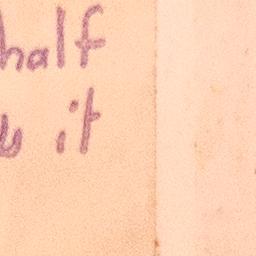 half
it